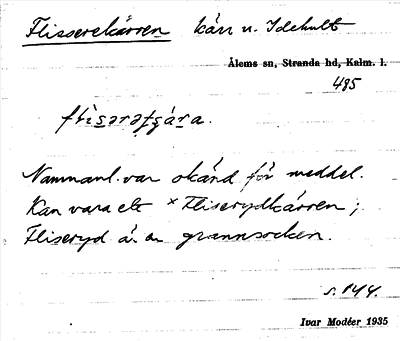 Flisserekärren kärr u. Idehult
Ålems sn, Stranda hd, Kalm. l.
485
Namnanl. var okänd för meddel.
Kan vara ett × Fliserydkärren;
Fliseryd är en grannsocken.
s. 144.
Ivar Modéer 1935